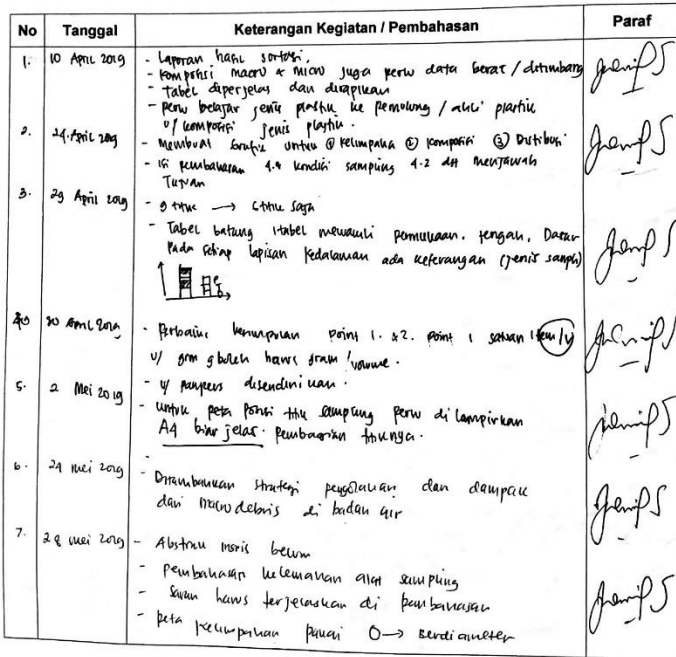 No Tanggal Keterangan Kegiatan / Pembahasan Paraf
1. 10 April 2019 - Laporan hasil sortasi.
- Komposisi macro & micro juga perlu data berat / ditimbang
- Tabel diperjelas dan dirapikan
- perlu belajar jenis plastik ke pemulung / ahli plastik
u/ komposisi jenis plastik.
2. 24 April 2019 - Membuat Grafik untuk ① Kelimpaha ② komposisi ③ Distribusi
- isi pembahasan 4.1 kondisi sampling 4.2 dst menjawab
Tujuan
3. 29 April 2019 - 9 titik → 6 titik saja
- Tabel batang 1 tabel mewakili permukaan, tengah, Dasar
pada setiap lapisan kedalaman ada keterangan (jenis sampah)
4. 30 April 2019 - Perbaiki kesimpulan point 1. & 2. point 1 satuan item/v
u/ grm g boleh harus gram/volume.
5. 2 Mei 2019 - u/ pampers disendirikan.
- untuk peta posisi titik sampling perlu dilampirkan
A4 biar jelas. pembagian titiknya.
6. 24 mei 2019 - Ditambahkan strategi pengolahan dan dampak
dari macro debris di badan air
7. 28 mei 2019 - Abstrak inggris belum
- pembahasan kelemahan alat sampling
- saran harus terjelaskan di pembahasan
- peta kelimpahan pakai O → berdiameter